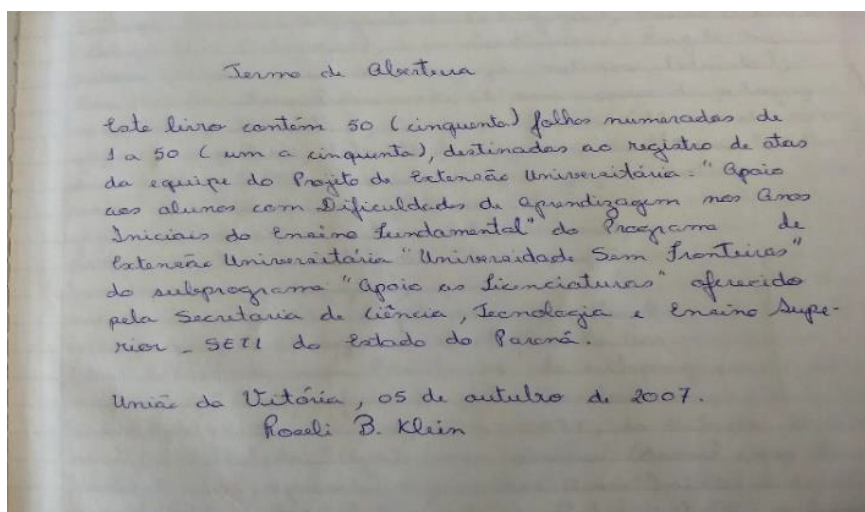 Termo de Abertura
Este livro contém 50 (cinquenta) folhas numeradas de
1 a 50 (um a cinquenta), destinadas ao registro de atas
da equipe do Projeto de Extensão Universitária: "Apoio
aos alunos com Dificuldades de Aprendizagem nos Anos
Iniciais do Ensino Fundamental" do Programa de
Extensão Universitária "Universidade Sem Fronteiras"
do subprograma "Apoio as Licenciaturas" oferecido
pela Secretaria de Ciência, Tecnologia e Ensino Supe-
rior - SETI do Estado do Paraná.
União da Vitória, 05 de outubro de 2007.
Roseli B. Klein